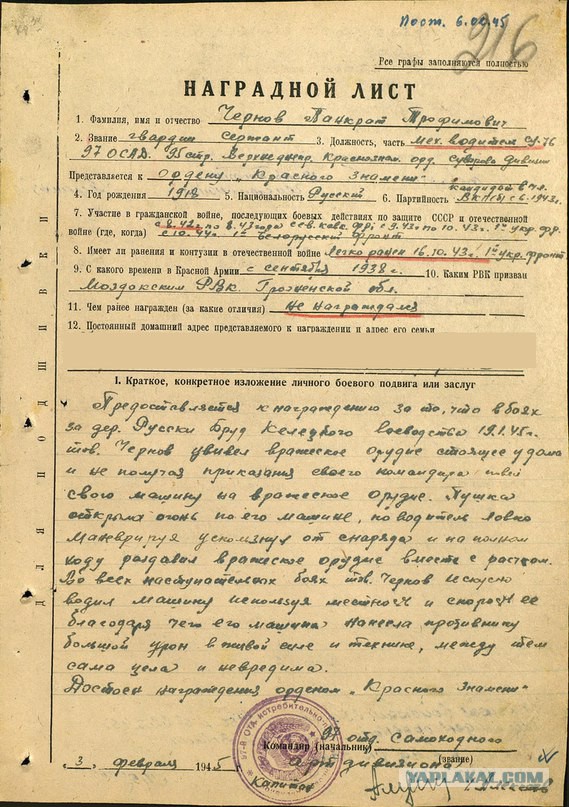 Пост. 6.02.45
216
Все графы заполняются полностью
НАГРАДНОЙ ЛИСТ
1. Фамилия, имя и отчество Чернов Панкрат Трофимович
2. Звание гвардии сержант 3. Должность, часть мех. водитель СУ-76
97 ОСАД. 95 стр. Верхнеднепр. Краснознам. орд. Суворова дивизии
Представляется к Ордену „Красного Знамени"
кандидат в чл.
4. Год рождения 1918 5. Национальность Русский 6. Партийность ВКП(б) с 6.1943г.
7. Участие в гражданской войне, последующих боевых действиях по защите СССР и отечественной
войне (где, когда) с 8.42г по 8.43 года сев. кавк. фр; с 9.43 по 10.43г. 1й укр. фр.
с 10.44г. 1й Белорусский фронт
8. Имеет ли ранения и контузии в отечественной войне легко ранен 16.10.43г. 1й укр. фронт
9. С какого времени в Красной Армии с сентября 1938г. 10. Каким РВК призван
Моздокским РВК. Грозненской обл.
11. Чем ранее награжден (за какие отличия) Не награждался
12. Постоянный домашний адрес представляемого к награждению и адрес его семьи
I. Краткое, конкретное изложение личного боевого подвига или заслуг
Предоставляется к награждению за то, что в боях
за дер. Русски Бруд Келецкого воеводства 19.1.45г.
тов. Чернов увидел вражеское орудие стоящее у дома
и не получая приказания своего командира повел
свою машину на вражеское орудие. Пушка
открыла огонь по его машине, но водитель ловко
маневрируя ускользнул от снаряда и на полном
ходу раздавил вражеское орудие вместе с расчетом.
Во всех наступательных боях тов. Чернов искусно
водил машину используя местность и скорость ее
благодаря чего его машина нанесла противнику
большой урон в живой силе и технике, между тем
сама цела и невредима.
Достоен награждения орденом „Красного Знамени"
Командир (начальник) 97 отд. самоходного
(звание)
„3„ февраля 1945 артдивизиона
Капитан
ДЛЯ ПОДШИВКИ
YAPLAKAL.COM